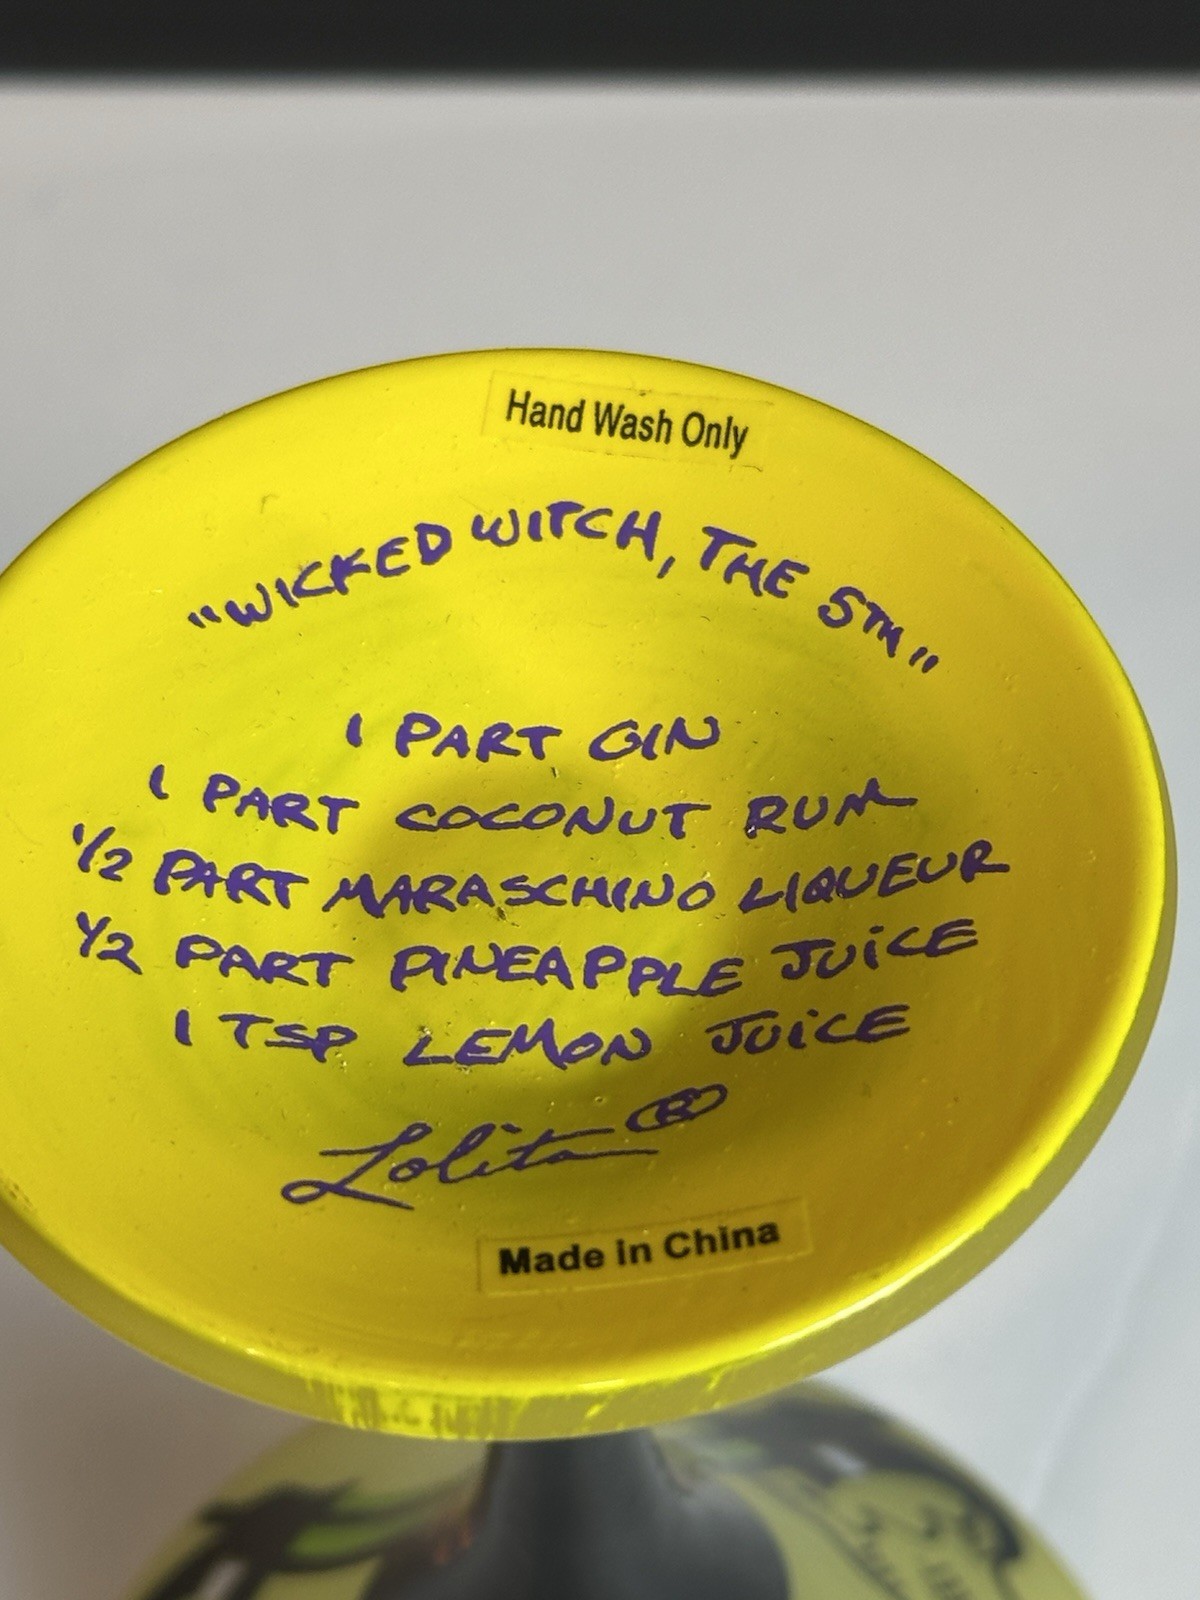 Hand Wash Only
"WICKED WITCH, THE 5TH"
1 PART GIN
1 PART COCONUT RUM
1/2 PART MARASCHINO LIQUEUR
1/2 PART PINEAPPLE JUiCE
1 TSP LEMON JUiCE
Lolita®
Made in China